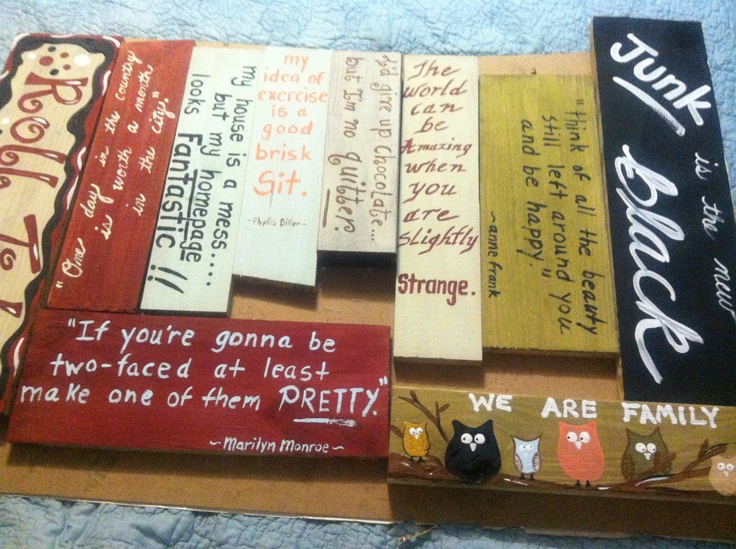 Roll
"One day in the country
is worth a month
in the city."
my house is a mess....
but my homepage
looks Fantastic!!
my
idea of
exercise
is a
good
brisk
Sit.
~Phyllis Diller~
I'd give up chocolate...
but I'm no quitter.
The
world
can
be
Amazing
when
you
are
slightly
strange.
"Think of all the beauty
still left around you
and be happy."
~anne frank
Junk is the new
black
"If you're gonna be
two-faced at least
make one of them PRETTY."
~Marilyn Monroe~
WE ARE FAMILY